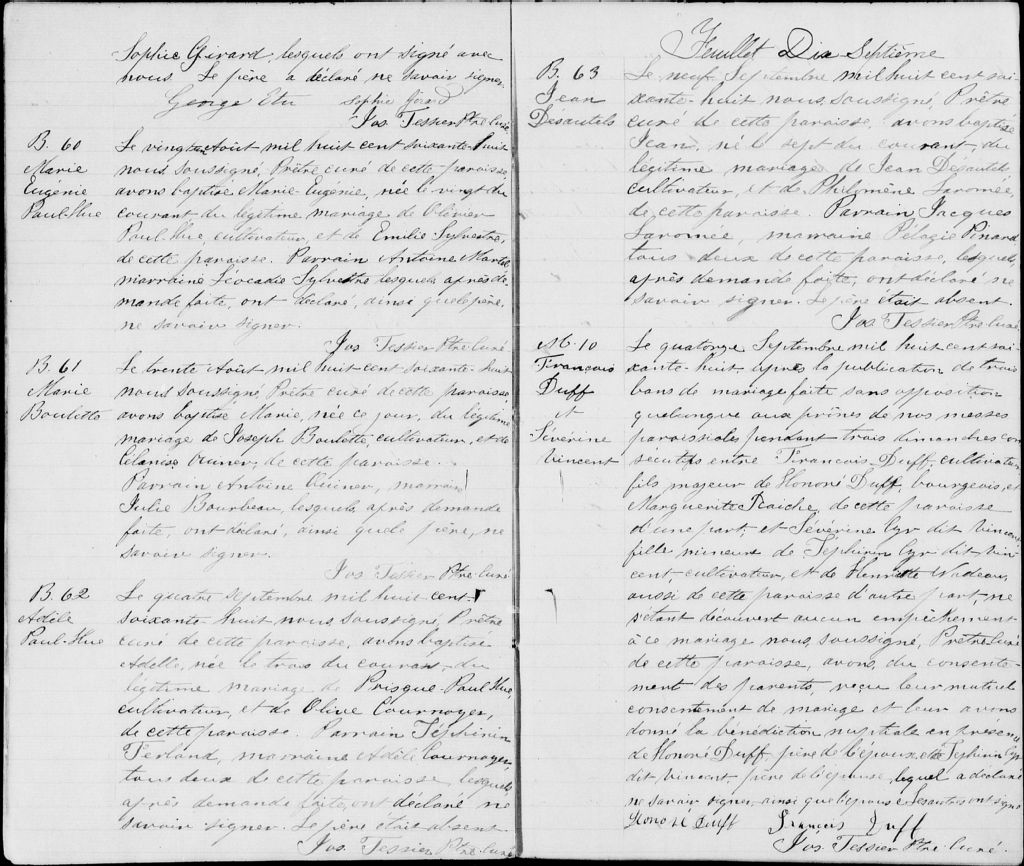 Sophie Girard, lesquels ont signé avec
nous. Le père a déclaré ne savoir signer.
George Etu Sophie Girard
Jos Tessier Ptre curé
B. 60
Marie
Eugénie
Paul-Hue
Le vingt Août mil huit cent soixante-huit
nous soussigné, Prêtre curé de cette paroisse,
avons baptisé Marie-Eugénie, née le vingt du
courant du légitime mariage de Olivier
Paul-Hue, cultivateur, et de Emilie Sylvestre,
de cette paroisse. Parrain Antoine Martel
marraine Léocadie Sylvestre lesquels après de-
mande faite, ont déclaré, ainsi que le père,
ne savoir signer.
Jos Tessier Ptre curé
B. 61
Marie
Boulette
Le trente Août mil huit cent soixante-huit
nous soussigné, Prêtre curé de cette paroisse,
avons baptisé Marie, née ce jour, du légitime
mariage de Joseph Boulette, cultivateur, et de
Célanise, de cette paroisse.
Parrain Antoine, marraine
Julie Bourbeau, lesquels, après demande
faite, ont déclaré, ainsi que le père, ne
savoir signer.
Jos Tessier Ptre curé
B. 62
Adèle
Paul-Hue
Le quatre Septembre mil huit cent
soixante-huit nous soussigné, Prêtre
curé de cette paroisse, avons baptisé
Adelle, née le trois du courant, du
légitime mariage de Prisque Paul-Hue,
cultivateur, et de Olive Cournoyer,
de cette paroisse. Parrain Téphirin
Ferland, marraine Adèle Cournoyer,
tous deux de cette paroisse, lesquels,
après demande faite, ont déclaré ne
savoir signer. Le père était absent.
Jos Tessier Ptre curé
Feuillet Dix Septième
B. 63
Jean
Désautels
Le neuf Septembre mil huit cent soi-
xante-huit nous, soussigné, Prêtre
curé de cette paroisse, avons baptisé
Jean, né le sept du courant, du
légitime mariage de Jean Désautels
cultivateur, et de Philomène Laromée
de cette paroisse. Parrain Jacques
Laromée, marraine Pélagie Pinard
tous deux de cette paroisse, lesquels,
après demande faite, ont déclaré ne
savoir signer. Le père était absent.
Jos Tessier Ptre curé
M. 10
François
Duff
et
Séverine
Vincent
Le quatorze Septembre mil huit cent soi-
xante-huit, après la publication de trois
bans de mariage faite sans opposition
quelconque aux prônes de nos messes
paroissiales pendant trois dimanches con-
sécutifs entre François Duff, cultivateur
fils majeur de Honoré Duff, bourgeois, et
Marguerite Raiche, de cette paroisse
d'une part; et Séverine Cyr dit Vincent
fille mineure de Téphirin Cyr dit Vin-
cent cultivateur, et de Henriette Nadeau,
aussi de cette paroisse d'autre part, ne
s'étant découvert aucun empêchement
à ce mariage nous, soussigné, Prêtre Curé
de cette paroisse, avons, du consente-
ment des parents, reçu leur mutuel
consentement de mariage et leur avons
donné la bénédiction nuptiale en présence
de Honoré Duff, père de l'époux, et de Téphirin Cyr
dit Vincent père de l'épouse, lequel a déclaré
ne savoir signer, ainsi que l'épouse. Les autres ont signé
Honoré Duff François Duff
Jos Tessier Ptre curé.